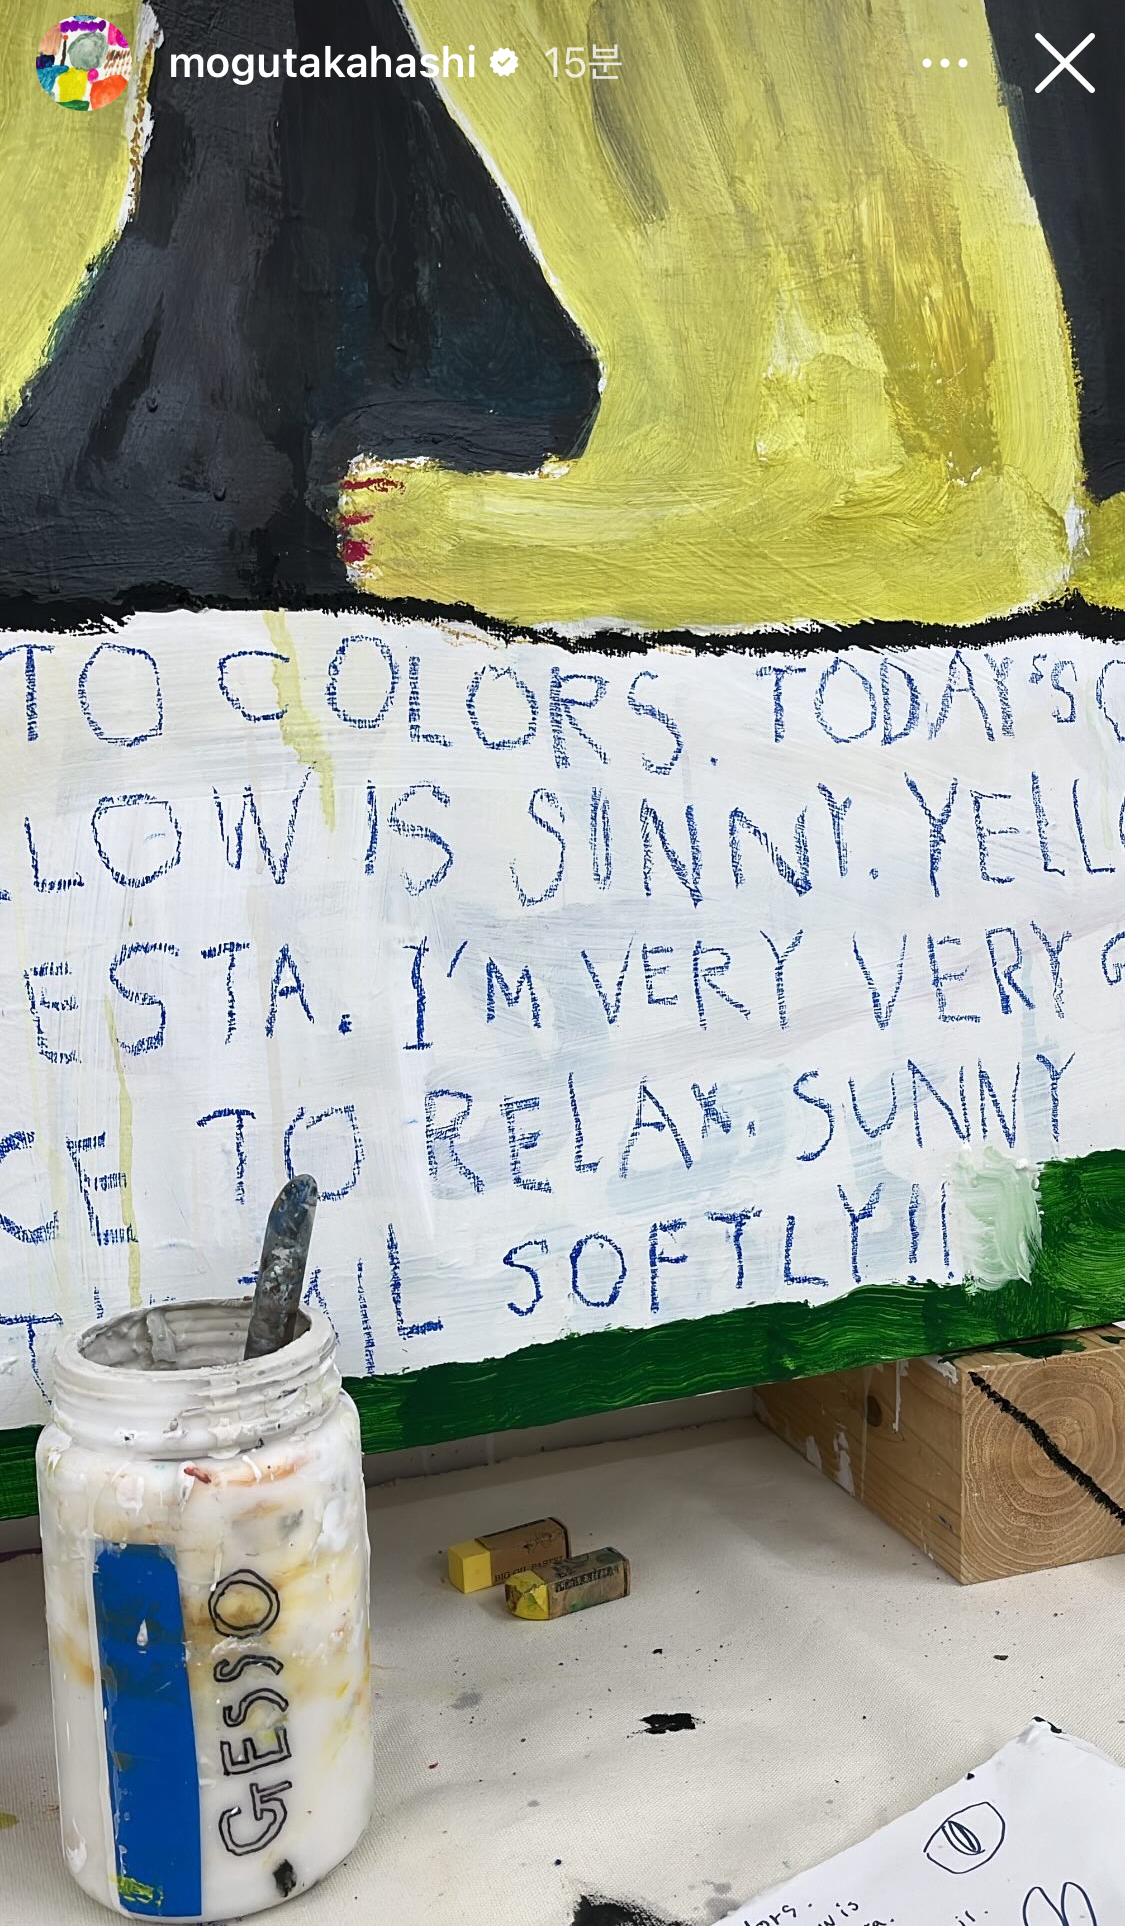 mogutakahashi 15분
TO COLORS. TODAY'S
LOW IS SUNNY. YELLO
ESTA. I'M VERY VERY G
CE TO RELAX. SUNNY
SOFTLY!!
BIG OIL PASTEL
GESSO